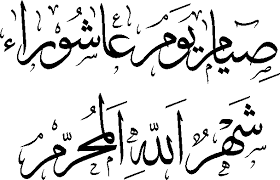 صِيَام يَوم عَاشُورَاء
شَهْرُ اللهِ المُحَرَّم